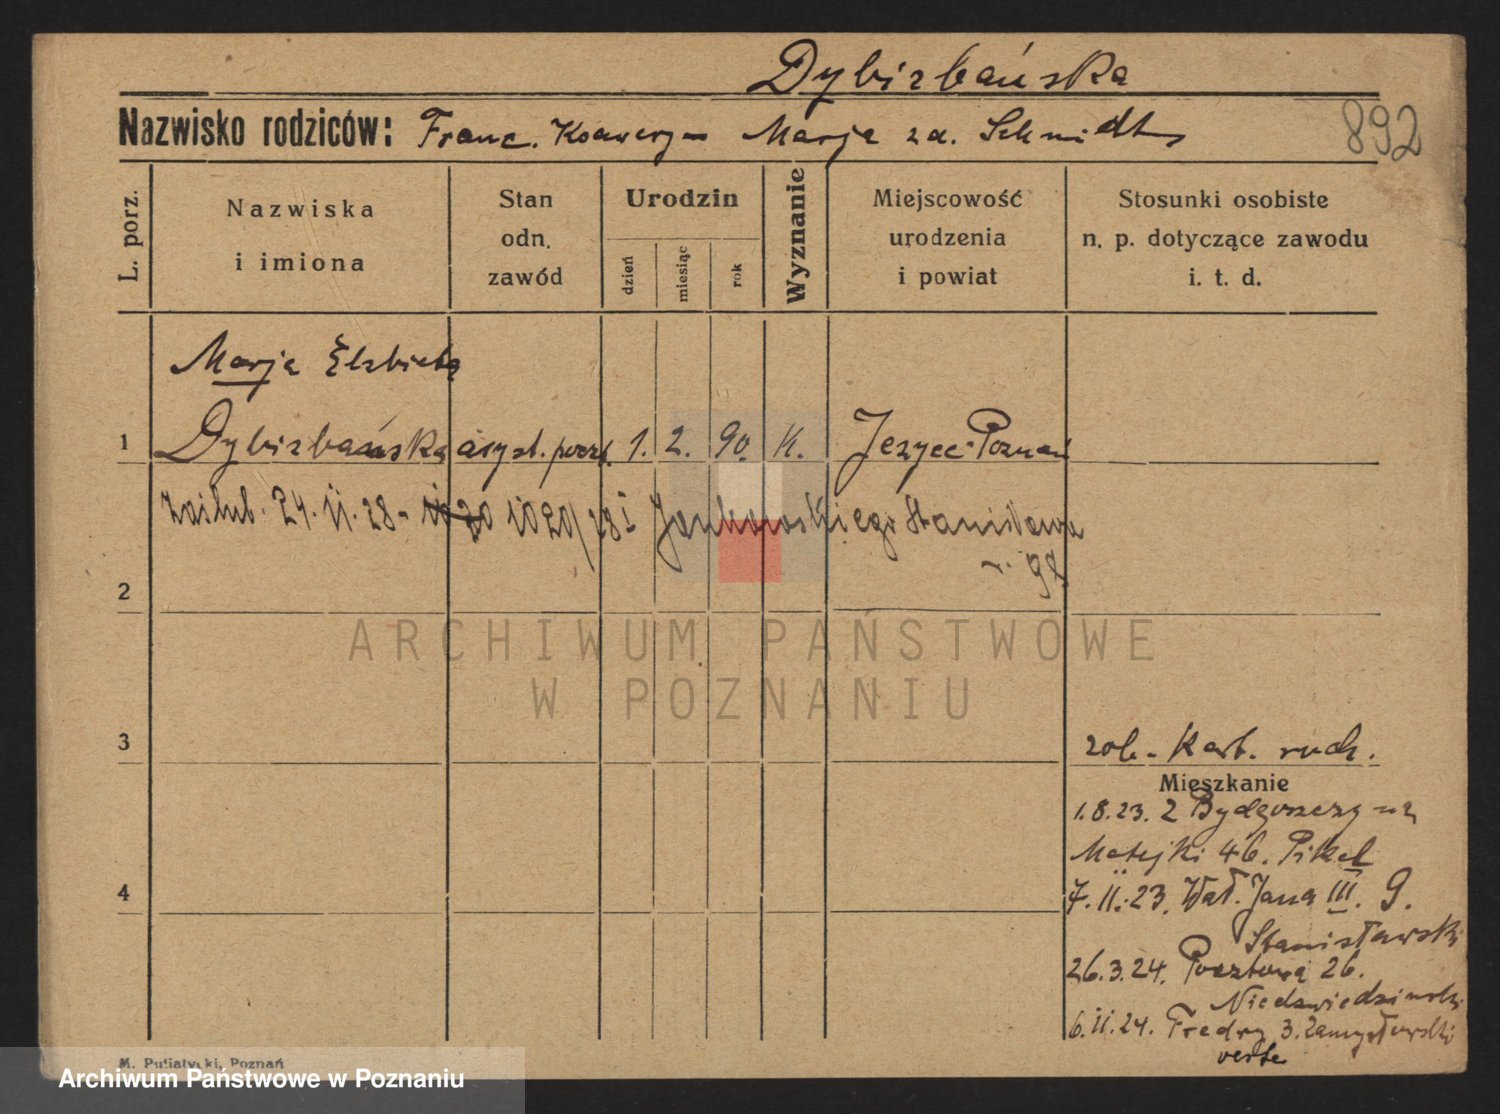 Dybizbańska
892
Nazwisko rodziców: Franc. Ksawery - Marja zd. Schmidt
L. porz.
Nazwiska
i imiona
Stan
odn.
zawód
Urodzin
dzień
miesiąc
rok
Wyznanie
Miejscowość
urodzenia
i powiat
Stosunki osobiste
n. p. dotyczące zawodu
i. t. d.
Marja Elżbieta
1 Dybizbańska asyst. poczt. 1. 2. 90. K. Jeżyce-Poznań
Zaślub. 24. 11. 28 - Jankowskiego Stanisława
2
ARCHIWUM PAŃSTWOWE
W POZNANIU
3
zob. Kart. ruch.
Mieszkanie
1.8.23. z Bydgoszczy
Matejki 46. Pikel
4
7.11.23. Wał. Jana III. 9.
Stanisławski
26.3.24. Pocztowa 26.
Niedzwiedziński
6.11.24. Fredry 3. Zamysłowski
verte
M. Putiatycki, Poznań
Archiwum Państwowe w Poznaniu